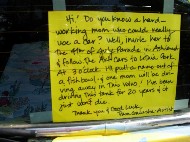 Hi! Do you know a hard-
working mom who could really
use a car? Well, invite her to
the 4th of July Parade in Ashland
& follow the Art Cars to Lithia Park.
At 3 o'clock I'll pull a name out of
a fishbowl & one mom will be dri-
ving away in this Volvo! I've been
driving this tank for 20 years & it
just don't die.
Thank you & Good Luck,
Artist